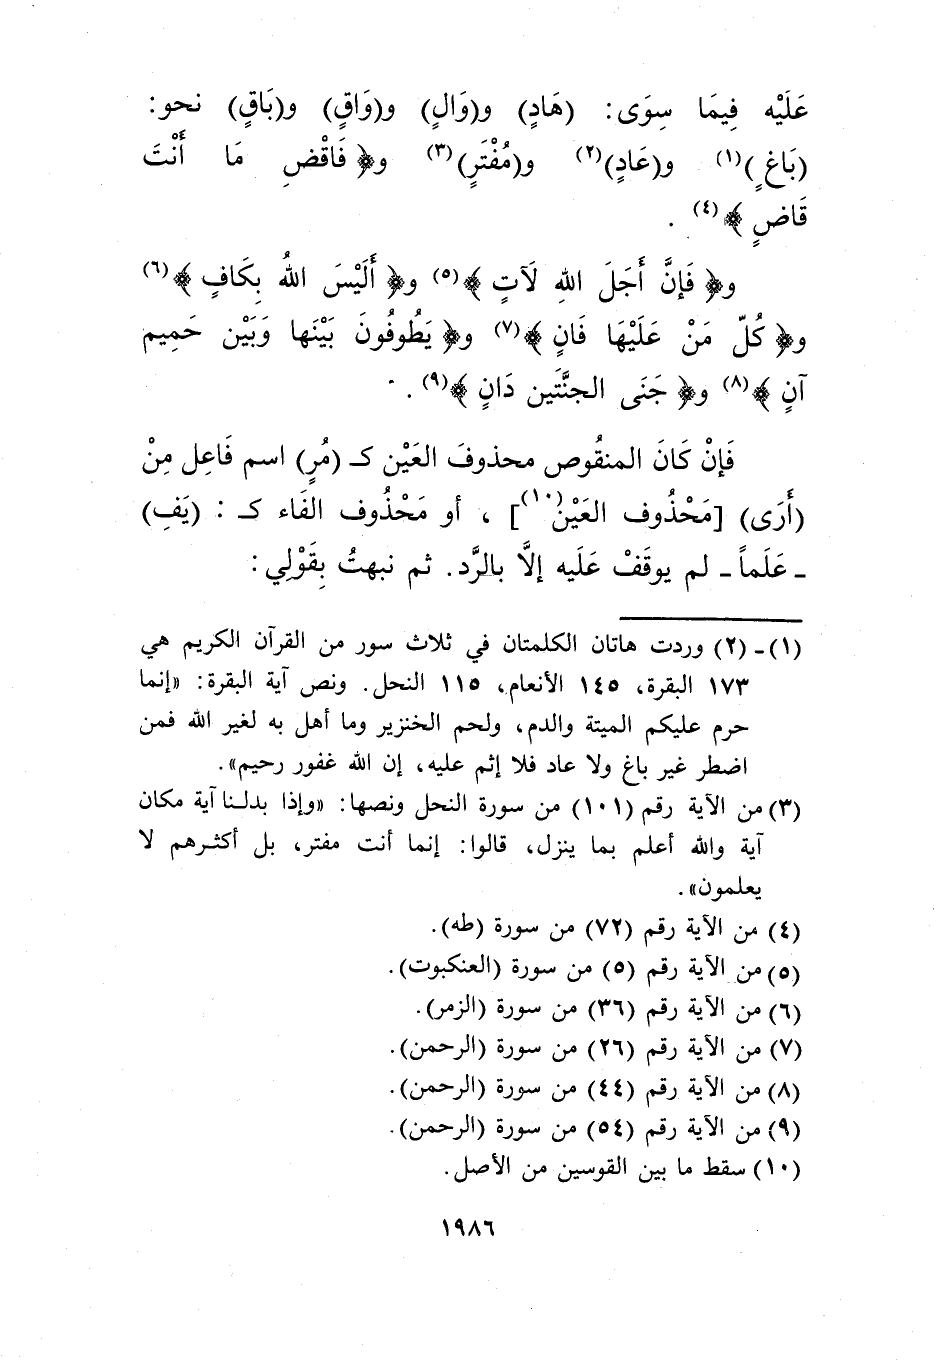 عَلَيْه فِيمَا سِوَى: (هَادٍ) و(وَالٍ) و(وَاقٍ) و(بَاقٍ) نحو:
(بَاغٍ)(١) و(عَادٍ)(٢) و(مُفْتَرٍ)(٣) و﴿ فَاقْضِ مَا أَنْتَ
قَاضٍ ﴾(٤) .
و﴿ فَإِنَّ أَجَلَ اللهِ لَآتٍ ﴾(٥) و﴿ أَلَيْسَ اللهُ بِكَافٍ ﴾(٦)
و﴿ كُلّ مَنْ عَلَيْهَا فَانٍ ﴾(٧) و﴿ يَطُوفُونَ بَيْنَها وَبَيْن حَمِيم
آنٍ ﴾(٨) و﴿ جَنَى الجنَّتَين دَانٍ ﴾(٩) .
فَإِنْ كَانَ المنقُوص محذوفَ العَيْن كـ (مُرٍ) اسم فَاعِل مِنْ
(أَرَى) [مَحْذُوف العَيْنْ(١٠)] ، أو مَحْذُوف الفَاء كـ : (يَفِ)
ـ عَلَماً ـ لم يوقَفْ عَلَيه إلَّا بالرَّد. ثم نبهتُ بِقَوْلِي:
(١)ـ(٢) وردت هاتان الكلمتان في ثلاث سور من القرآن الكريم هي
١٧٣ البقرة، ١٤٥ الأنعام، ١١٥ النحل. ونص آية البقرة: «إنما
حرم عليكم الميتة والدم، ولحم الخنزير وما أهل به لغير الله فمن
اضطر غير باغ ولا عاد فلا إثم عليه، إن الله غفور رحيم».
(٣) من الآية رقم (١٠١) من سورة النحل ونصها: «وإذا بدلنا آية مكان
آية والله أعلم بما ينزل، قالوا: إنما أنت مفتر، بل أكثرهم لا
يعلمون».
(٤) من الآية رقم (٧٢) من سورة (طه).
(٥) من الآية رقم (٥) من سورة (العنكبوت).
(٦) من الآية رقم (٣٦) من سورة (الزمر).
(٧) من الآية رقم (٢٦) من سورة (الرحمن).
(٨) من الآية رقم (٤٤) من سورة (الرحمن).
(٩) من الآية رقم (٥٤) من سورة (الرحمن).
(١٠) سقط ما بين القوسين من الأصل.
١٩٨٦